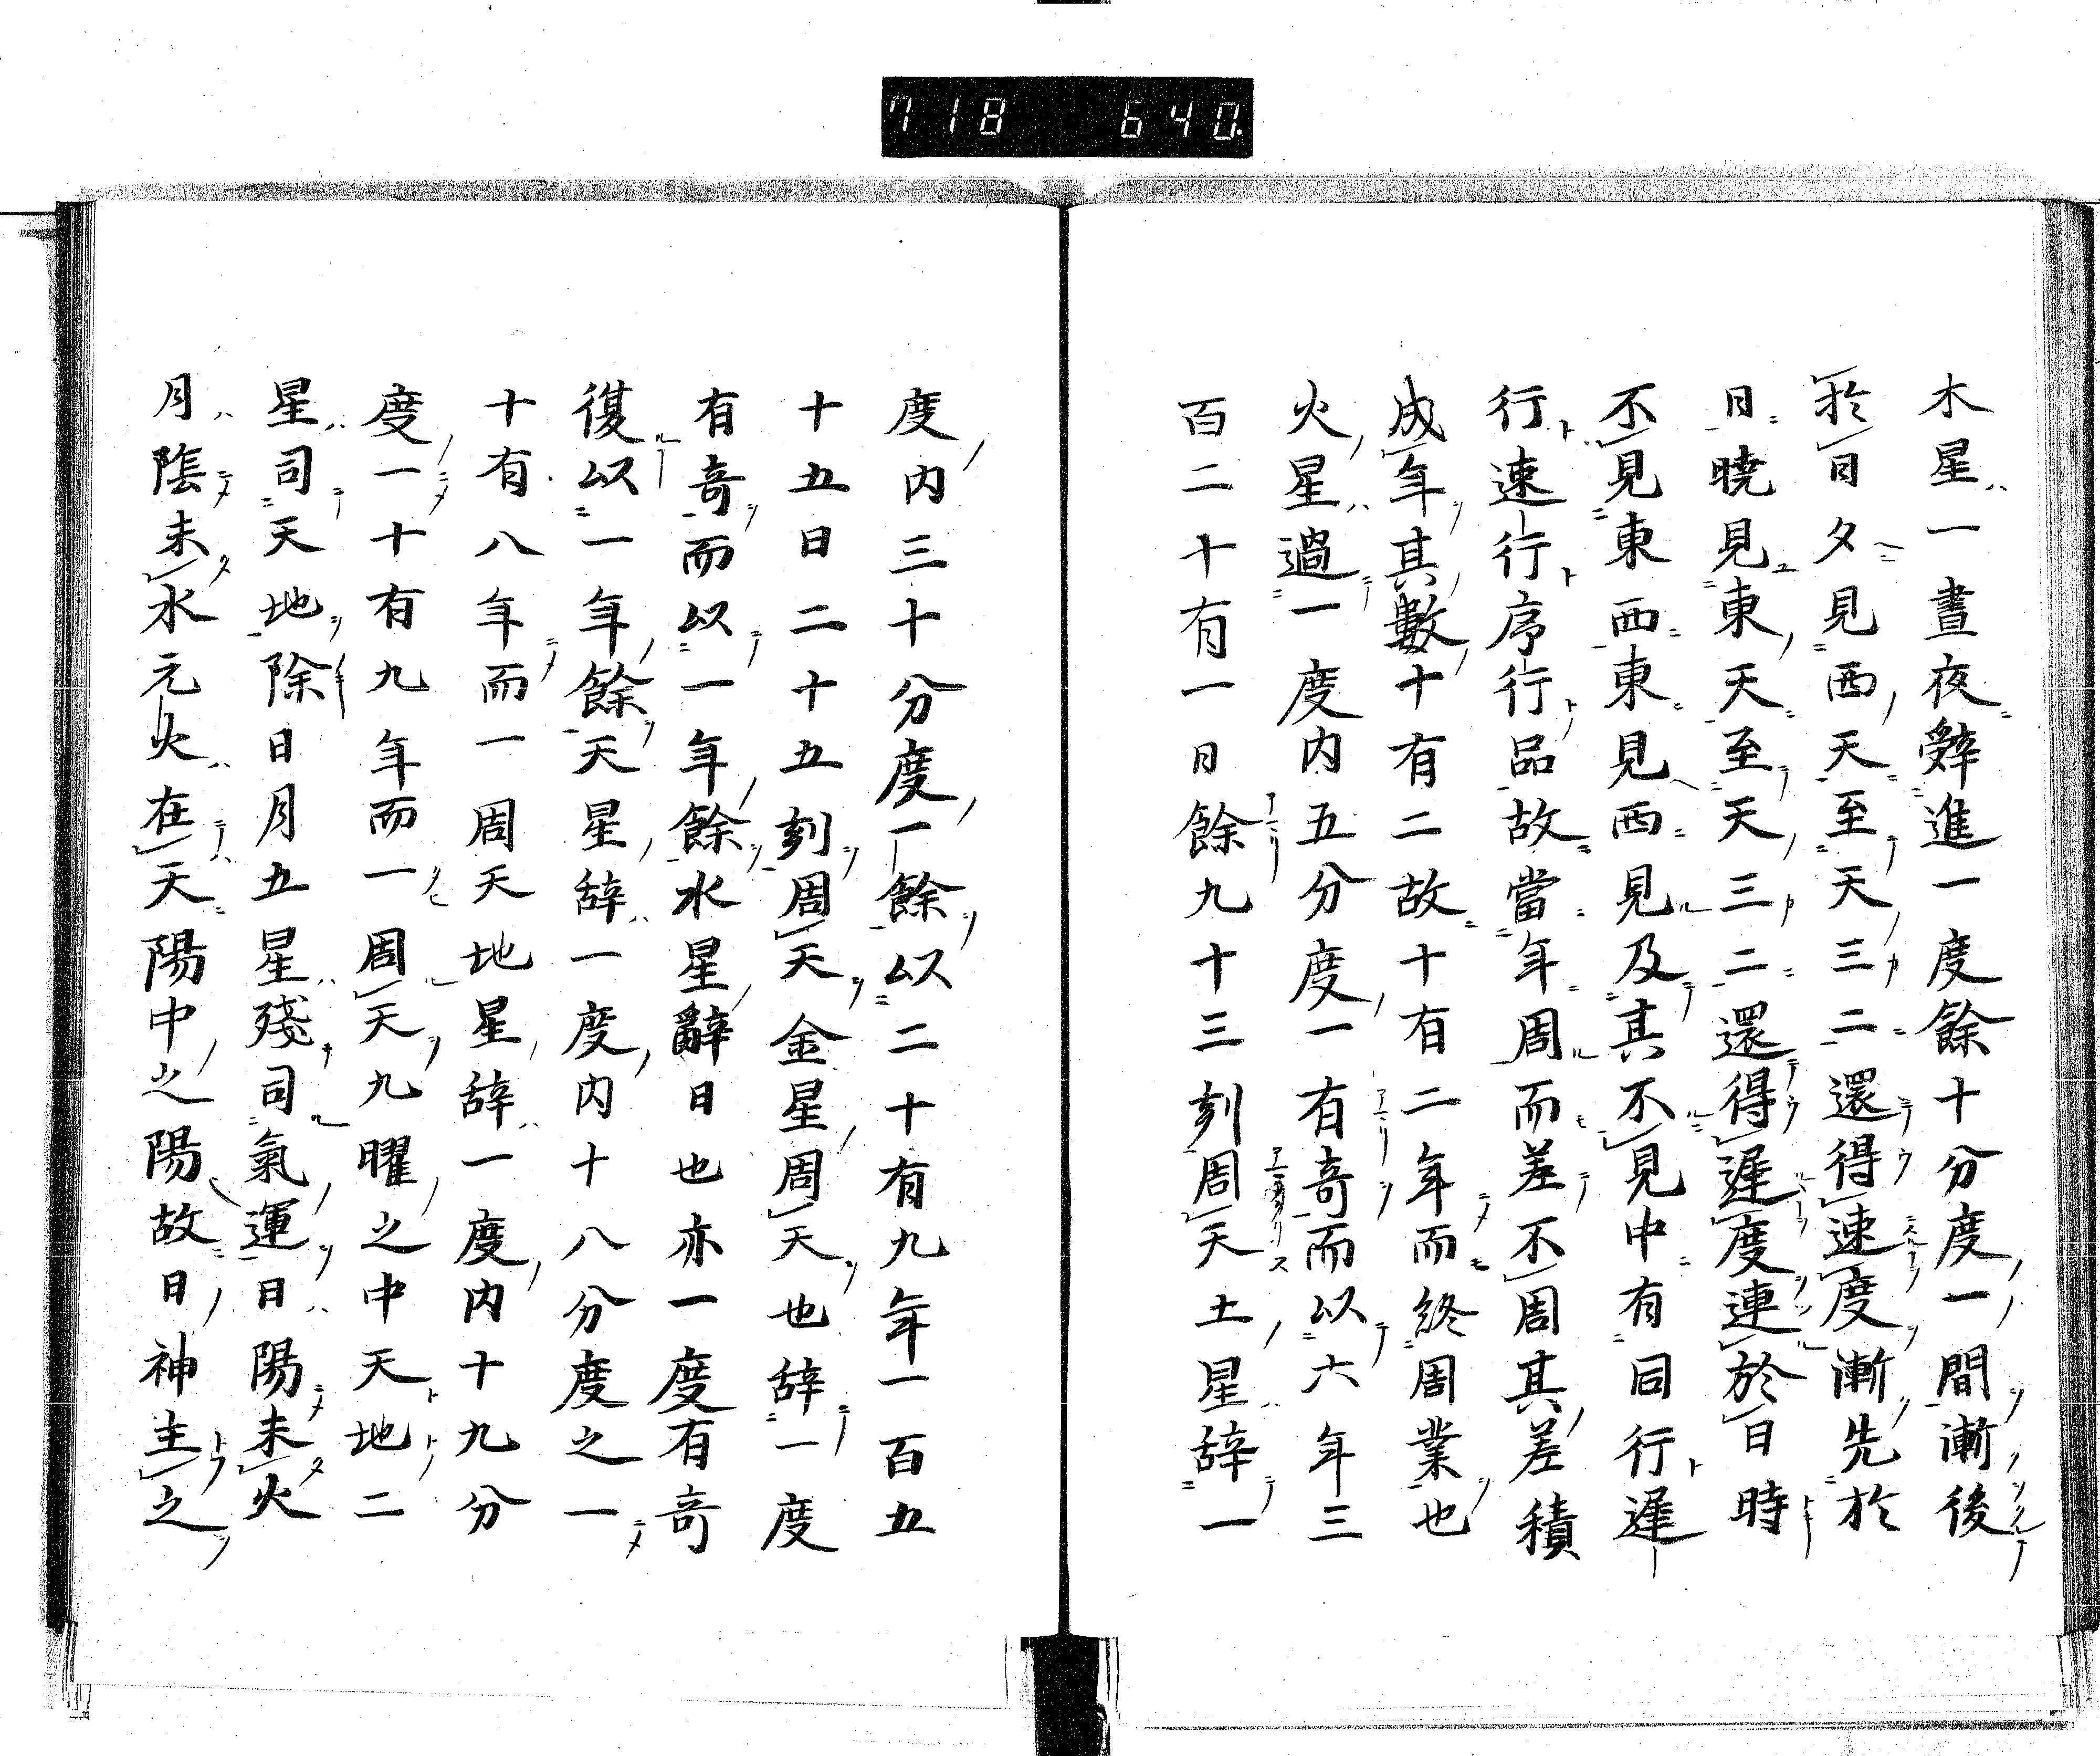 718 640.
木星一晝夜辭進一度餘十分度一間漸後
於日夕見西天至天三二還得速度漸先於
日曉見東天至天三二還得遲度連於日時
不見東西東見西見及其不見中有同行遲
行速行序行品故當年周而差不周其差積
成年其數十有二故十有二年而終周業也
火星過一度內五分度一有奇而以六年三
百二十有一日餘九十三刻周天土星辞一
度內三十分度一餘以二十有九年一百五
十五日二十五刻周天金星周天也辞一度
有奇而以一年餘水星辭日也亦一度有奇
復以一年餘天星辞一度內十八分度之一
十有八年而一周天地星辞一度內十九分
度一十有九年而一周天九曜之中天地二
星司天地除日月五星殘司氣運日陽未火
月陰未水元火在天陽中之陽故日神主之